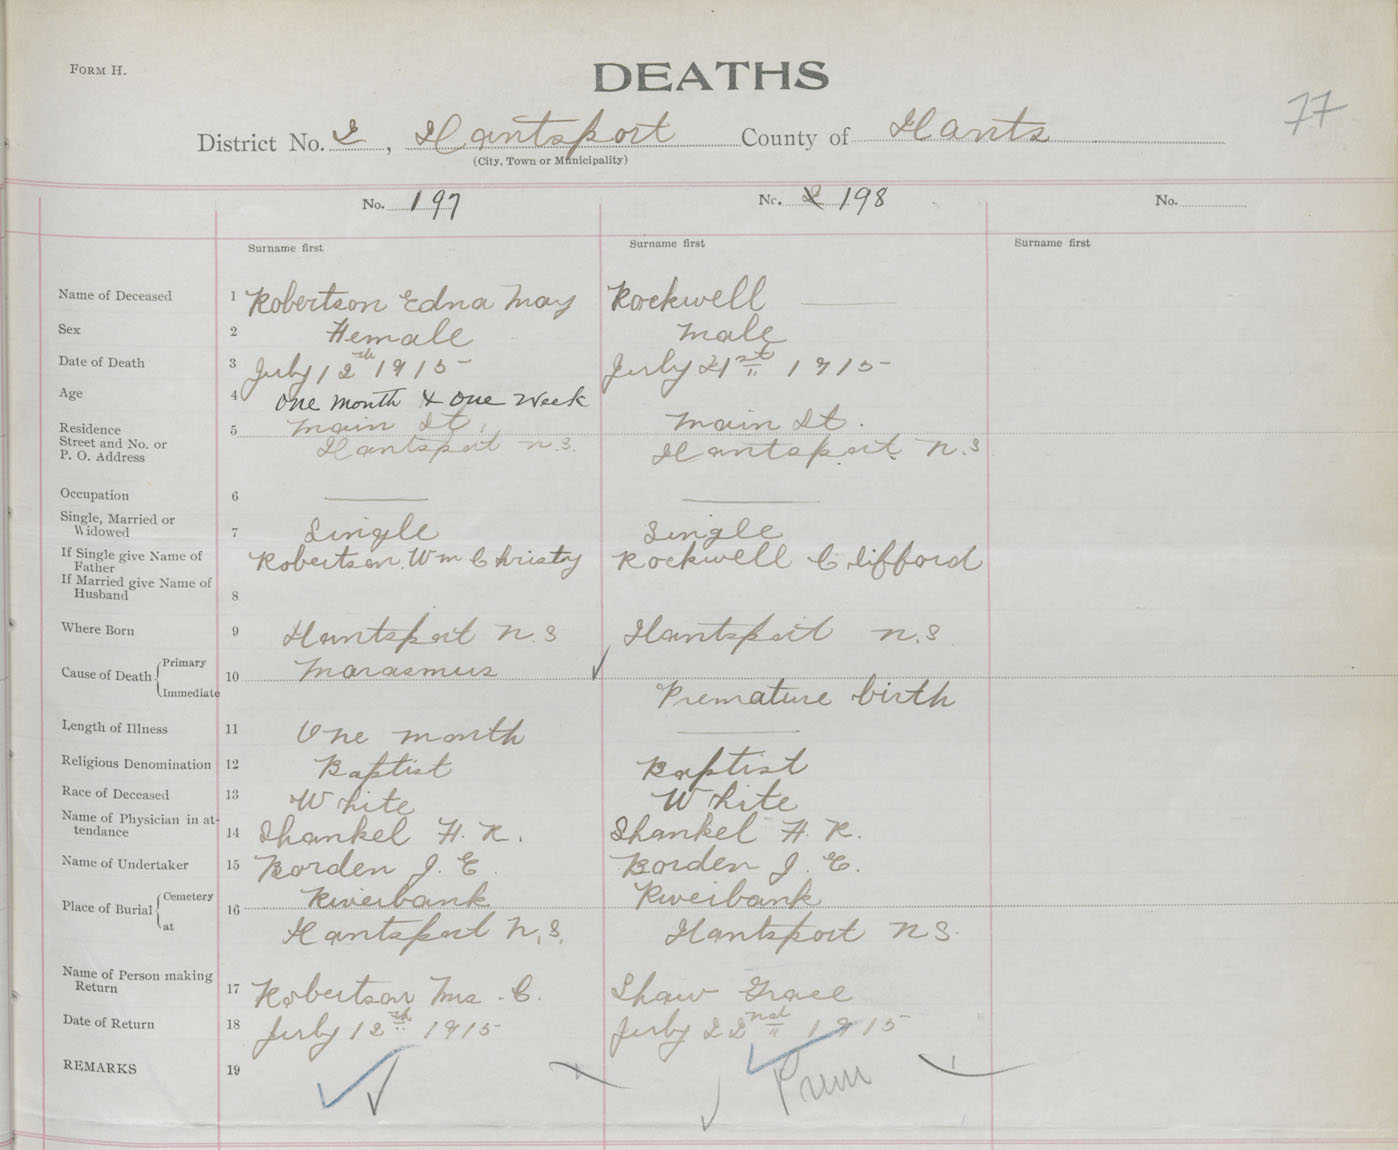 FORM H.
DEATHS
77
District No. 2, Hantsport County of Hants
(City, Town or Municipality)
No. 197 No. 198 No.
Surname first Surname first Surname first
Name of Deceased 1 Robertson Edna May Rockwell
Sex 2 Female Male
Date of Death 3 July 12th 1915 July 21st 1915
Age 4 One month & One Week
Residence 5 Main St. Main St.
Street and No. or
P. O. Address Hantsport N.S. Hantsport N.S
Occupation 6
Single, Married or
Widowed 7 Single Single
If Single give Name of
Father Robertson Wm Christy Rockwell Clifford
If Married give Name of
Husband 8
Where Born 9 Hantsport N.S Hantsport N.S
Cause of Death Primary 10 Marasmus
Immediate Premature birth
Length of Illness 11 One month
Religious Denomination 12 Baptist Baptist
Race of Deceased 13 White White
Name of Physician in at-
tendance 14 Shankel H. R. Shankel H. R.
Name of Undertaker 15 Borden J. E. Borden J. E.
Place of Burial Cemetery 16 Riverbank Riverbank
at Hantsport N.S. Hantsport N S.
Name of Person making
Return 17 Robertson Mrs. C. Shaw Grace
Date of Return 18 July 12th 1915 July 22nd 1915
REMARKS 19
Prem